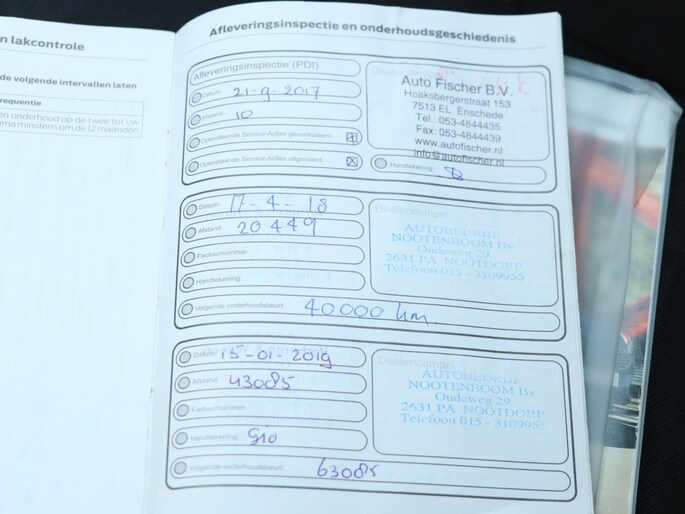 n lakcontrole
de volgende intervallen laten
requentie
én onderhoud op de twee tot uw
ma minstens om de 12 maanden
Afleveringsinspectie en onderhoudsgeschiedenis
Afleveringsinspectie (PDI)
Datum: 21-9-2017
Afstand: 10
Openstaande Service-Acties gecontroleerd:
Openstaande Service-Acties uitgevoerd:
Auto Fischer B.V.
Haaksbergerstraat 153
7513 EL Enschede
Tel. 053-4844435
Fax: 053-4844439
www.autofischer.nl
info@autofischer.nl
Handtekening:
Datum: 17-4-18
Afstand: 20449
Factuurnummer:
Handtekening:
Volgende onderhoudsbeurt: 40000 km.
Dealerstempel
AUTOBEDRIJF
NOOTENBOOM Bv
Oudeweg 29
2631 PA NOOTDORP
Telefoon 015 - 3109955
Datum: 15-01-2019
Afstand: 43085
Factuurnummer:
Handtekening: Gio
Volgende onderhoudsbeurt: 63085
Dealerstempel
AUTOBEDRIJF
NOOTENBOOM Bv
Oudeweg 29
2631 PA NOOTDORP
Telefoon 015 - 3109955